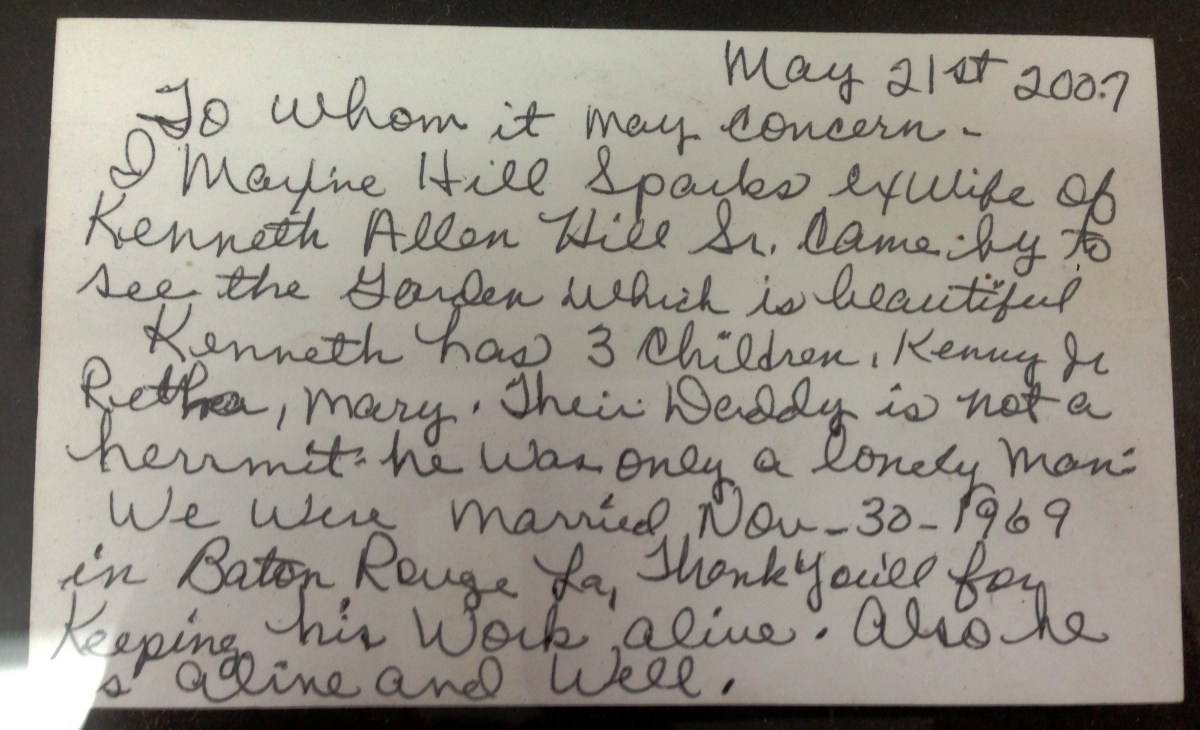 May 21st 2007
To whom it may concern-
I Mayfne Hill Sparks exwife of
Kenneth Allen Hill Sr. Came by to
see the Garden which is beautiful
Kenneth has 3 Children, Kenny Jr
Retha, Mary. Their Daddy is not a
herrmit he was only a lonely man
We were married Nov-30-1969
in Baton Rouge La, Thank You'll for
Keeping his Work alive. Also he
is aline and Well.